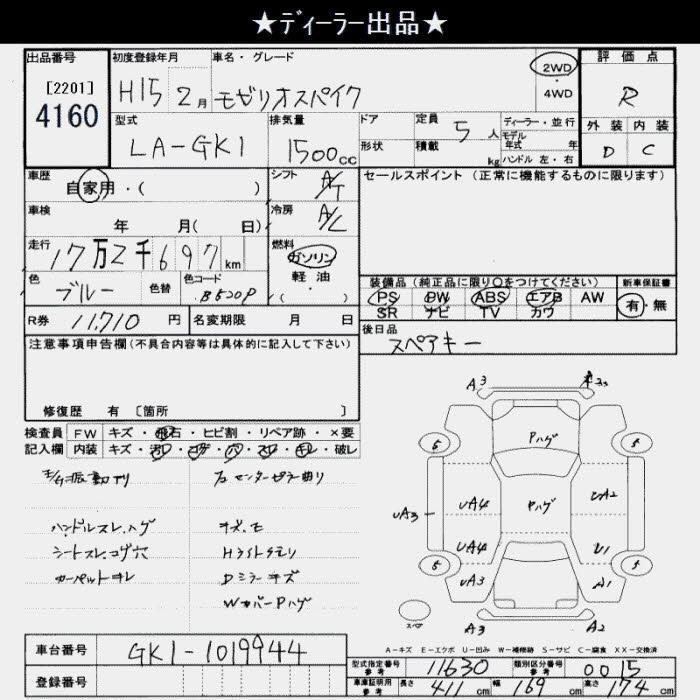 ★ディーラー出品★
出品番号 初度登録年月 車名・グレード 評価点
[2201] H15 2月 モビリオスパイク 2WD・4WD R
4160
型式 排気量 ドア 定員 5人 ディーラー・並行 外装 内装
LA-GK1 1500cc 形状 積載 kg モデル年式 年 D C
ハンドル 左・右
車歴 自家用・( ) シフト A/T セールスポイント (正常に機能するものに限ります)
車検 年 月( 日) 冷房 A/C
走行 17万2千697km 燃料 ガソリン 軽油 ( )
色 ブルー 色替 色コード B520P
装備品 (純正品に限り○をつけてください) 新車保証書
PS PW ABS エアB AW 有・無
SR ナビ TV カワ
R券 11,710円 名変期限 月 日 後日品
スペアキー
注意事項申告欄(不具合内容等は具体的に記入して下さい)
修復歴 有 〔箇所 〕
検査員 FW キズ・飛石・ヒビ割・リペア跡・×要
記入欄 内装 キズ・汚レ・コゲ・穴・スレ・キレ・破レ
ハンドルスレ,ハゲ キズ.モ
シートスレ.コゲ穴 Hライトクモリ
カーペットキレ Dミラーキズ
WカバーPハゲ
A3
Pハゲ
5 5
UA3 UA4 Pハゲ UA2
UA4 U1
5 5
UA3 A1
スペア A3 A2
A-キズ E-エクボ U-凹み W-補修跡 S-サビ C-腐食 XX-交換済
車台番号 GK1-1019944
型式指定番号 参考 11630 類別区分番号 参考 0015
登録番号 車庫証明用 参考 長さ 411cm 幅 169cm 高さ 174cm